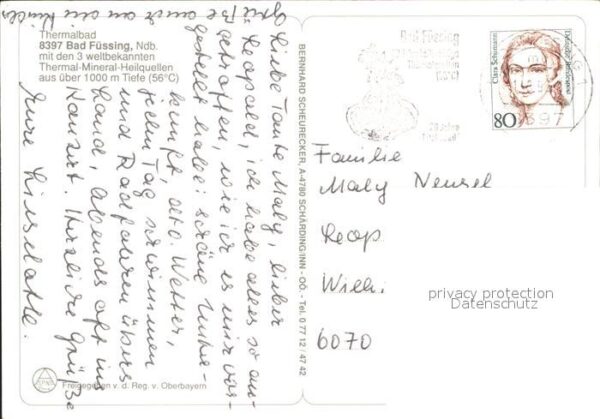 Thermalbad
8397 Bad Füssing, Ndb.
mit den 3 weltbekannten
Thermal-Mineral-Heilquellen
aus über 1000 m Tiefe (56°C)
Liebe Tante Maly, lieber
Leopold, ich habe alles so an-
getroffen, wie ich es mir vor-
gestellt habe: schöne Unter-
kunft, dto. Wetter,
jeden Tag schwimmen
und Radfahren übers
Land, abends oft ins
Konzert. Herzliche Grüße
Eure Liselotte.
Grüße auch an die Kinder
BERNHARD SCHEURECKER, A-4780 SCHÄRDING/INN - OÖ. - Tel. 0 77 12 / 47 42
Bad Füssing
Clara Schumann
Deutsche Bundespost
80
8397
Familie
Maly Neusel
Leop
Wilh
6070
privacy protection
Datenschutz
Freigegeben v. d. Reg. v. Oberbayern